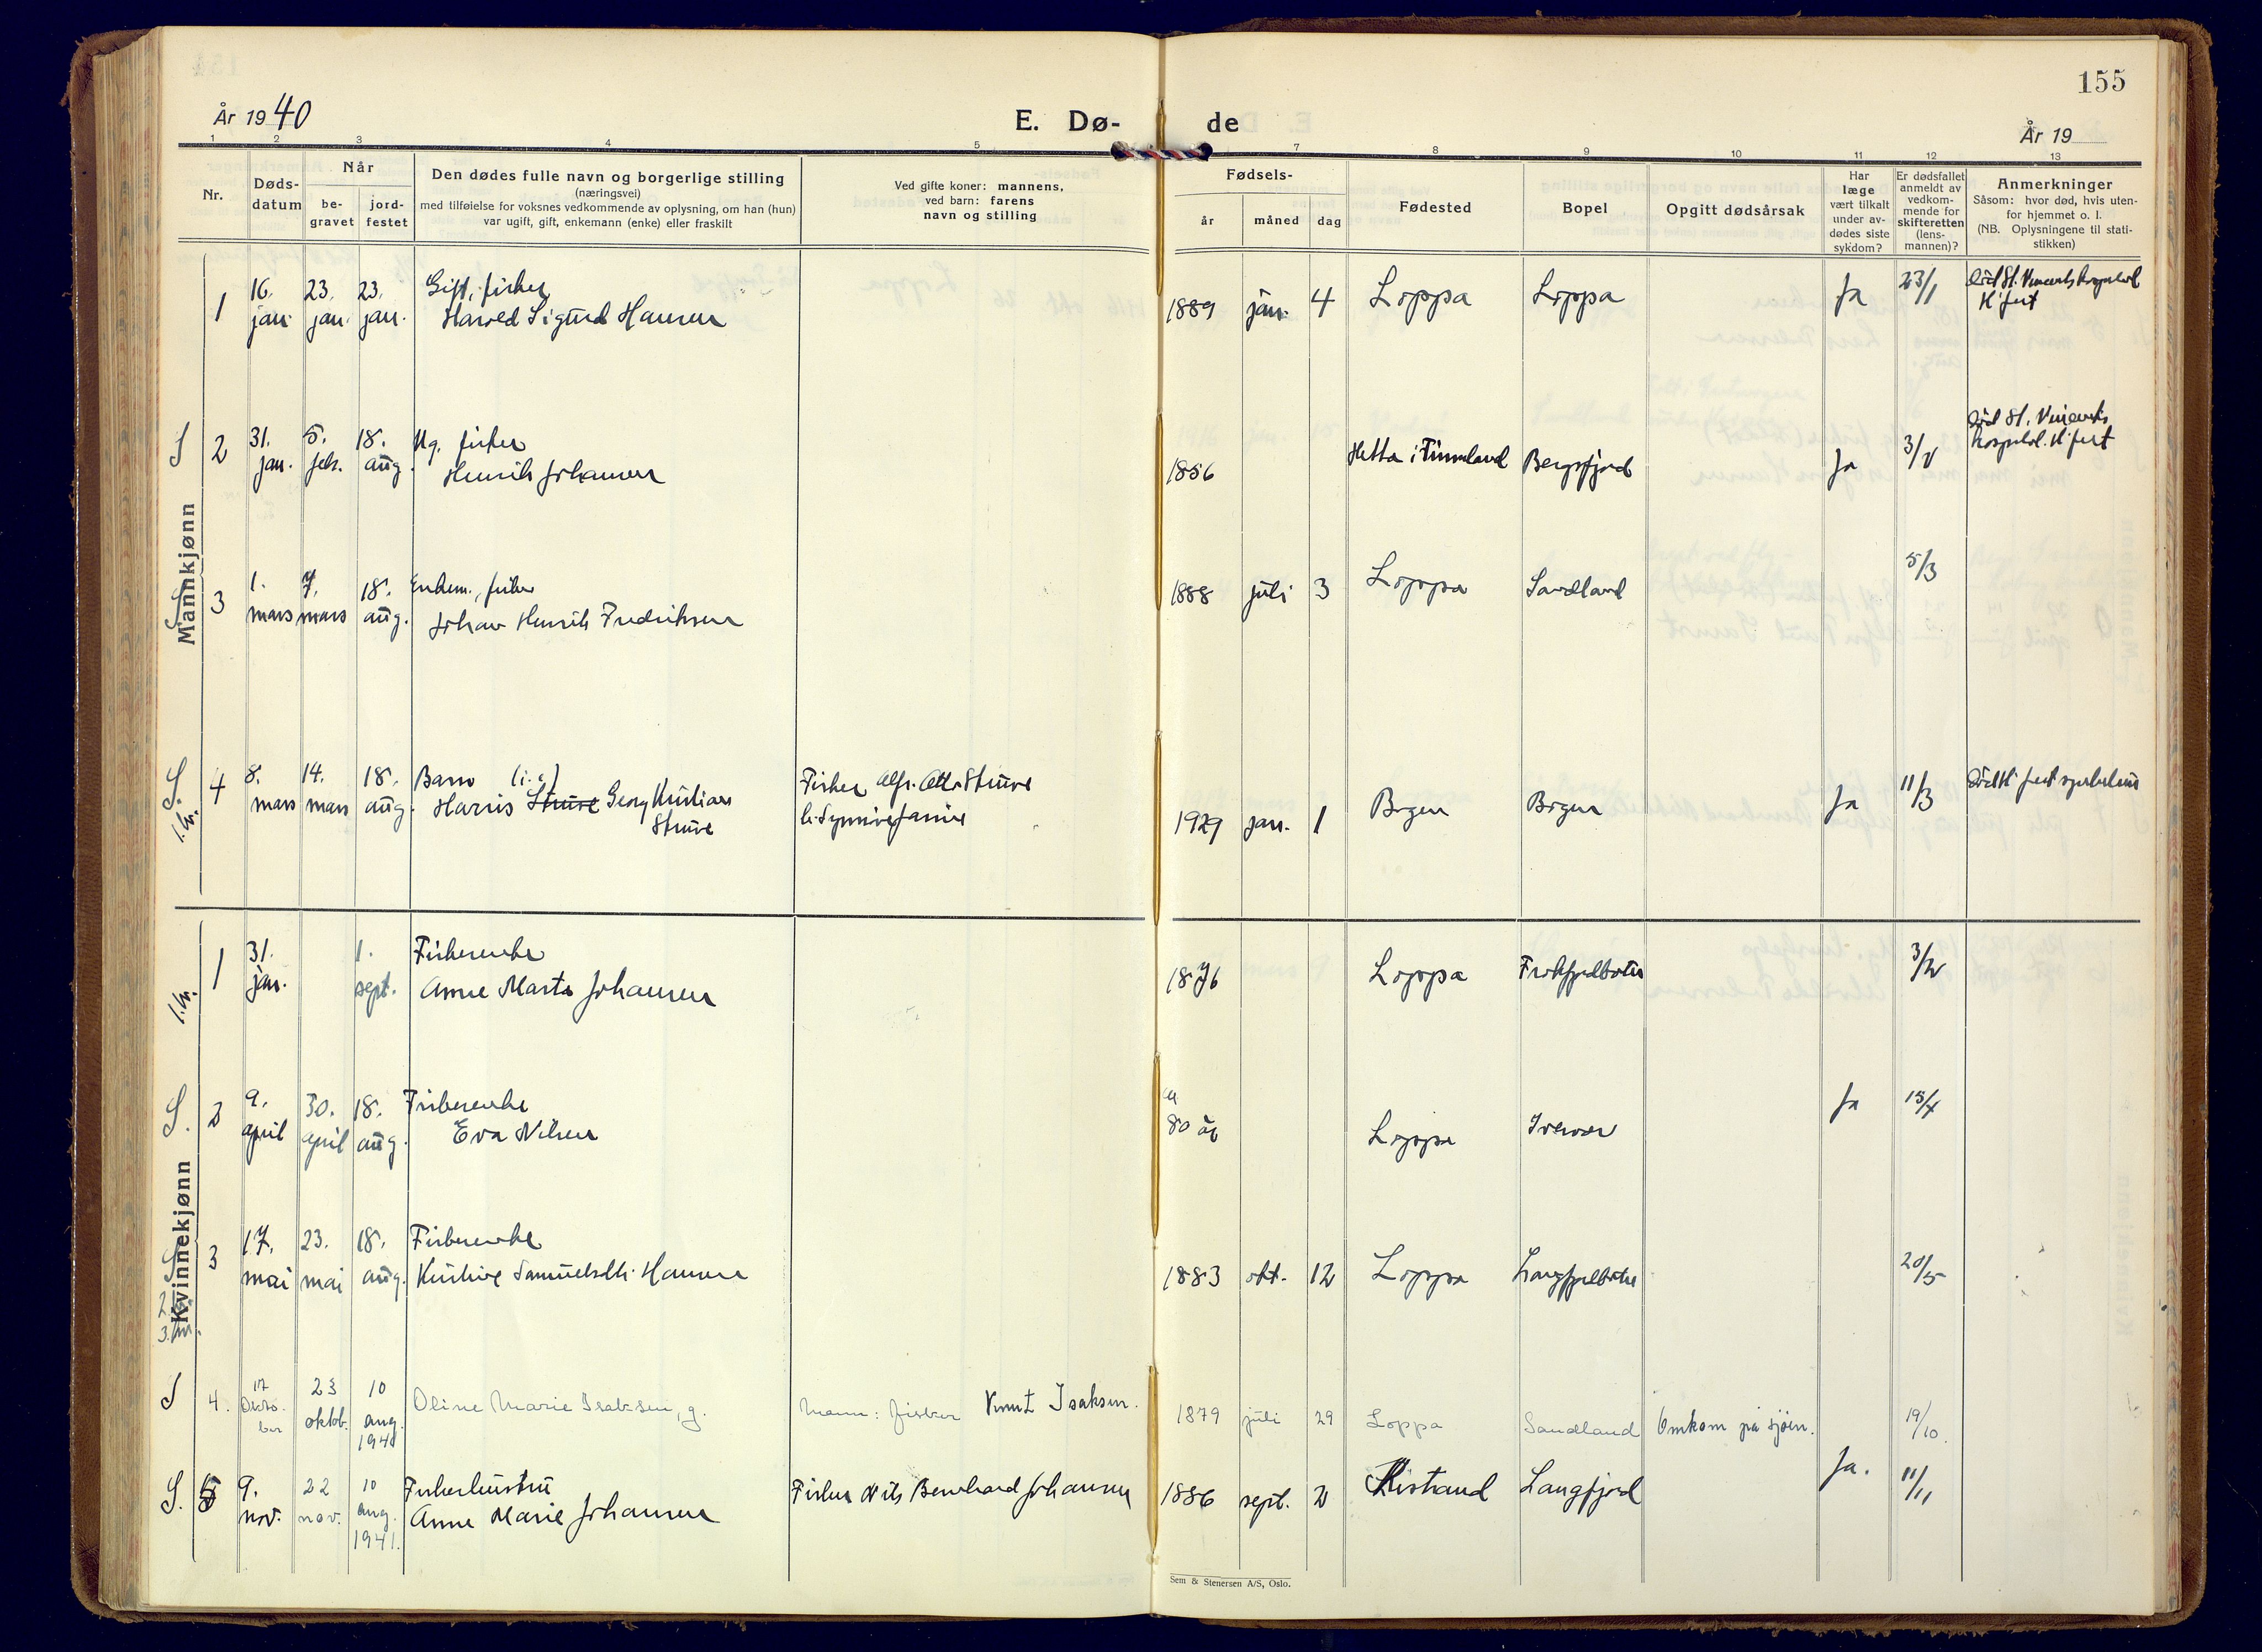 155
År 1940
E. Dø-
de
År 19
1 2 3 4 5 7 8 9 10 11 12 13
Nr.
Døds-
datum
Når
be-
gravet
jord-
festet
Den dødes fulle navn og borgerlige stilling
(næringsvei)
med tilføielse for voksnes vedkommende av oplysning, om han (hun)
var ugift, gift, enkemann (enke) eller fraskilt
Ved gifte koner: mannens,
ved barn: farens
navn og stilling
Fødsels-
år måned dag
Fødested
Bopel
Opgitt dødsårsak
Har
læge
vært tilkalt
under av-
dødes siste
sykdom?
Er dødsfallet
anmeldt av
vedkom-
mende for
skifteretten
(lens-
mannen)?
Anmerkninger
Såsom: hvor død, hvis uten-
for hjemmet o. l.
(NB. Oplysningene til stati-
stikken)
Mannkjønn
1 16. jan. 23. jan. 23. jan. Gift, fisker
Harald Sigurd Hansen
1889 jan. 4 Loppa Loppa Ja 23/1 død St. Vincents hospital
H'fest
S 2 31. jan. 5. feb. 18. aug. Ug. fisker
Henrik Johansen
1856 Hetta i Finnland Bergsfjord Ja 3/2 død St. Vincents
hospital. H'fest
S 3 1. mars 7. mars 18. aug. Enkem., fisker
Johan Henrik Fredriksen
1888 juli 3 Loppa Sandland 5/3
S. 4 8. mars 14. mars 18. aug. Barn
Harris Struve Georg Kristian
Struve
Fisker Alfr. Struve
1929 jan. 1 Bogen Bogen Ja 11/3 død H'fest sykehus
Kvinnekjønn
1 31. jan. 1. sept. Fiskerenke
Anne Marta Johansen
1876 Loppa 3/2
S. 2 9. april 30. april 18. aug. Fiskerenke
Eva Nilsen
ca 80 år Loppa Ja 15/4
S 3 17. mai 23. mai 18. aug. Fiskerenke
Kirstine Samuelsdtr. Hansen
1883 okt. 12 Loppa Langfjordbotn 20/5
S 4. 17 Oktober 23 oktob. 10 aug. 1941 Oline Marie Isaksen, g.
Mann: fisker Knut Isaksen.
1879 juli 29 Loppa Sandland Omkom på sjøen. 19/10.
S. 5 9. nov. 22 nov. 10 aug. 1941. Fiskerhustru
Anne Marie Johansen
Fisker Nils Bernhard Johansen
1886 sept. 2 Kistrand Langfjord Ja. 11/11
Sem & Stenersen A/S, Oslo.